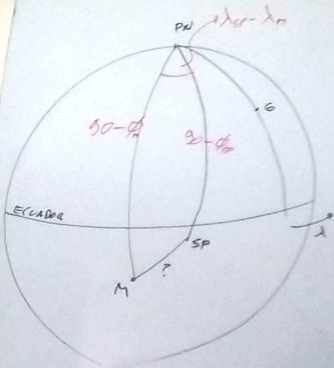 PN
λSP - λM
90-ϕM
90-ϕSP
G
ECUADOR
λ
SP
?
M